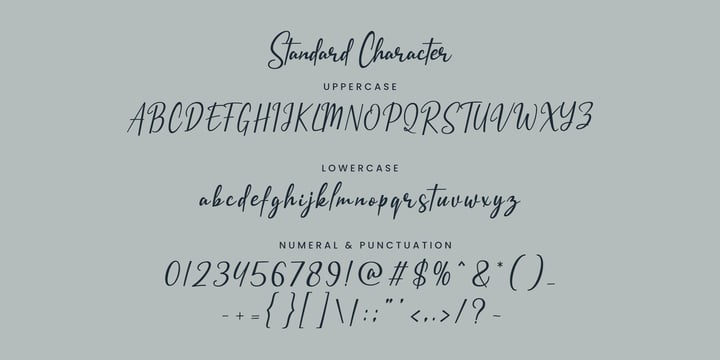 Standard Character
UPPERCASE
ABCDEFGHIJKLMNOPQRSTUVWXYZ
LOWERCASE
abcdefghijklmnopqrstuvwxyz
NUMERAL & PUNCTUATION
0123456789!@#$%^&*()_
-+={}[]\|:;"'<,.>/?~